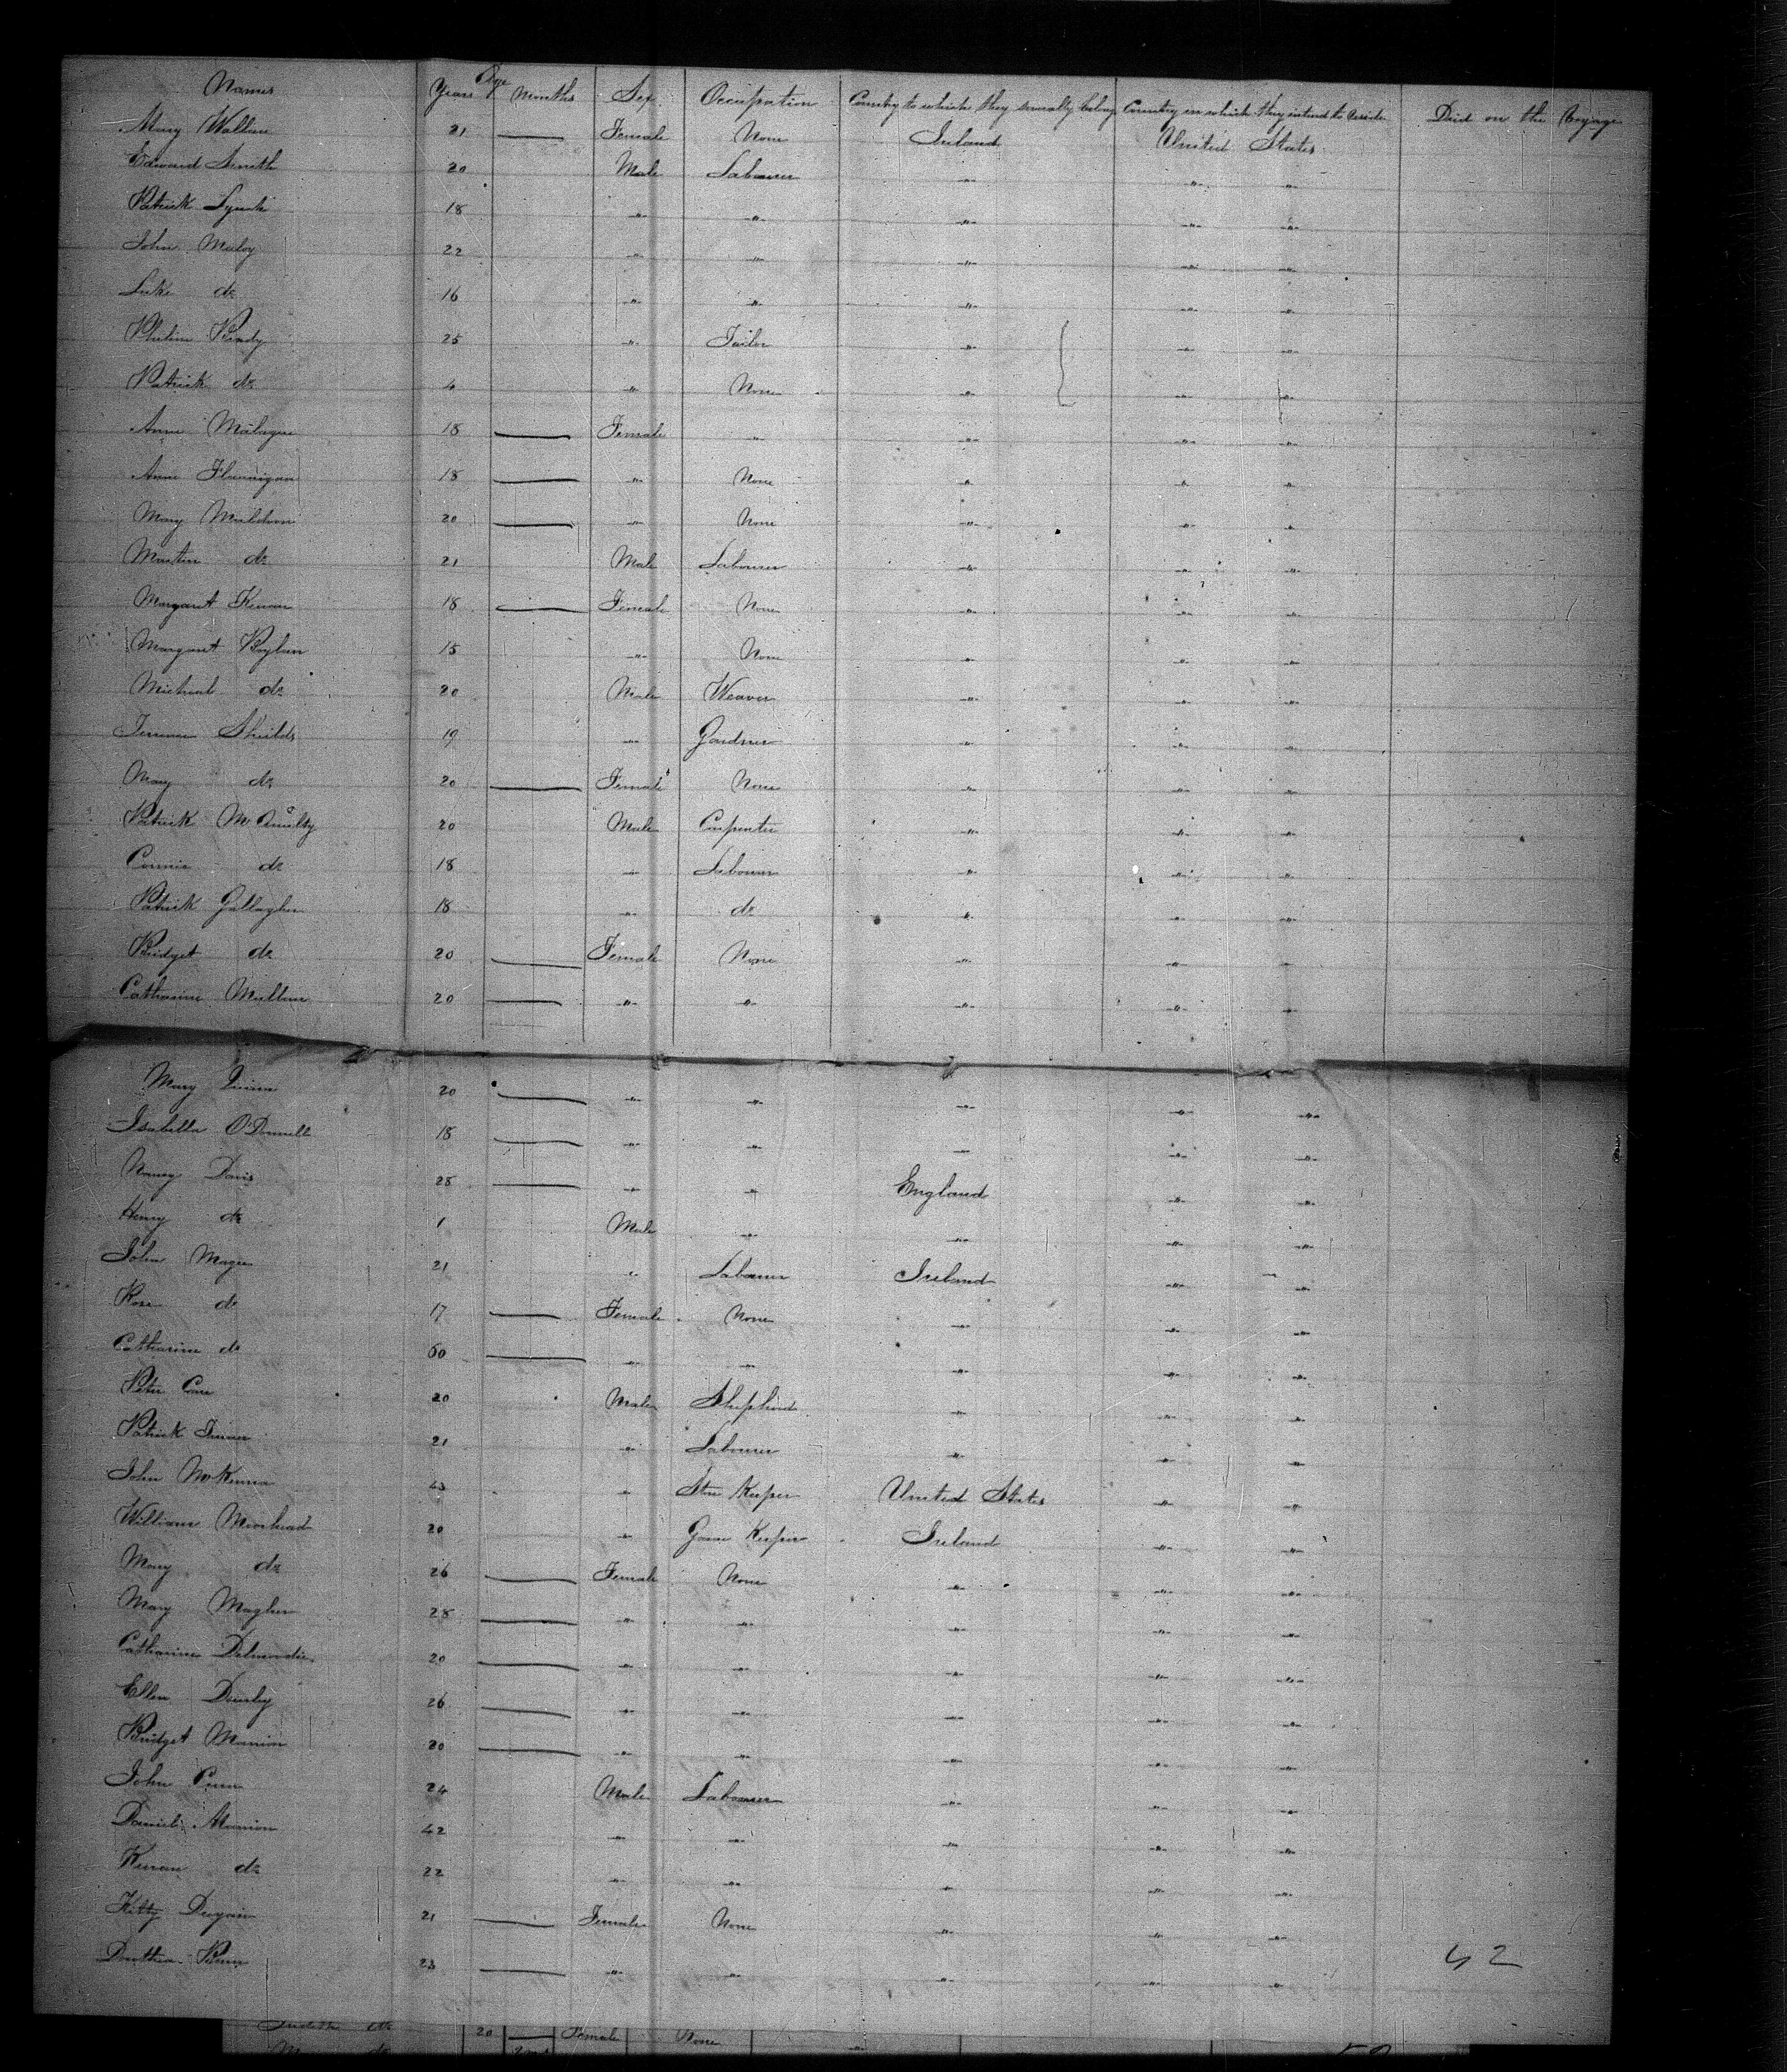 Names Age Years Months Sex Occupation Country to which they severally belong Country in which they intend to reside Died on the Voyage
Mary Wallace 21 — Female None Ireland United States
Edward Smith 20 Male Labourer " " "
Patrick Lynch 18 " " " " "
John Maloy 22 " " " " "
Luke do 16 " " " " "
25 " Tailor " " "
Patrick do 4 " None " " "
Anne 18 — Female " " " "
Anne Flannigan 18 — " None " " "
Mary Muldoon 20 — " None " " "
Martin do 21 Male Labourer " " "
Margaret Kenan 18 — Female None " " "
Margaret Boylan 15 " None " " "
Michael do 20 Male Weaver " " "
Terrence Shields 19 " Gardner " " "
Mary do 20 — Female None " " "
Patrick 20 Male Carpenter " " "
do 18 " Labourer " " "
Patrick Gallagher 18 " do " " "
Bridget do 20 — Female None " " "
Catharine Mullen 20 — " " " " "
Mary Quinn 20 — " " " " "
Isabella O'Donnell 18 — " " " " "
Nancy Davis 28 — " " England " "
Henry do 1 Male " " " "
John Magee 21 " Labourer Ireland " "
Rose do 17 — Female None " " "
Catharine do 60 — " " " " "
Peter 20 Male Shepherd " " "
Patrick 21 " Labourer " " "
John McKenna 43 " Store Keeper United States " "
William Moorhead 20 " Game Keeper Ireland " "
Mary do 26 — Female None " " "
Mary Magher 28 — " " " " "
Catharine 20 — " " " " "
Ellen 26 — " " " " "
Bridget Mannion 20 — " " " " "
John 24 Male Labourer " " "
Daniel Mannion 42 " " " " "
Kieran do 22 " " " " "
Kitty 21 — Female None " " "
23 — " " " " "
42
Judith do 20 — Female None